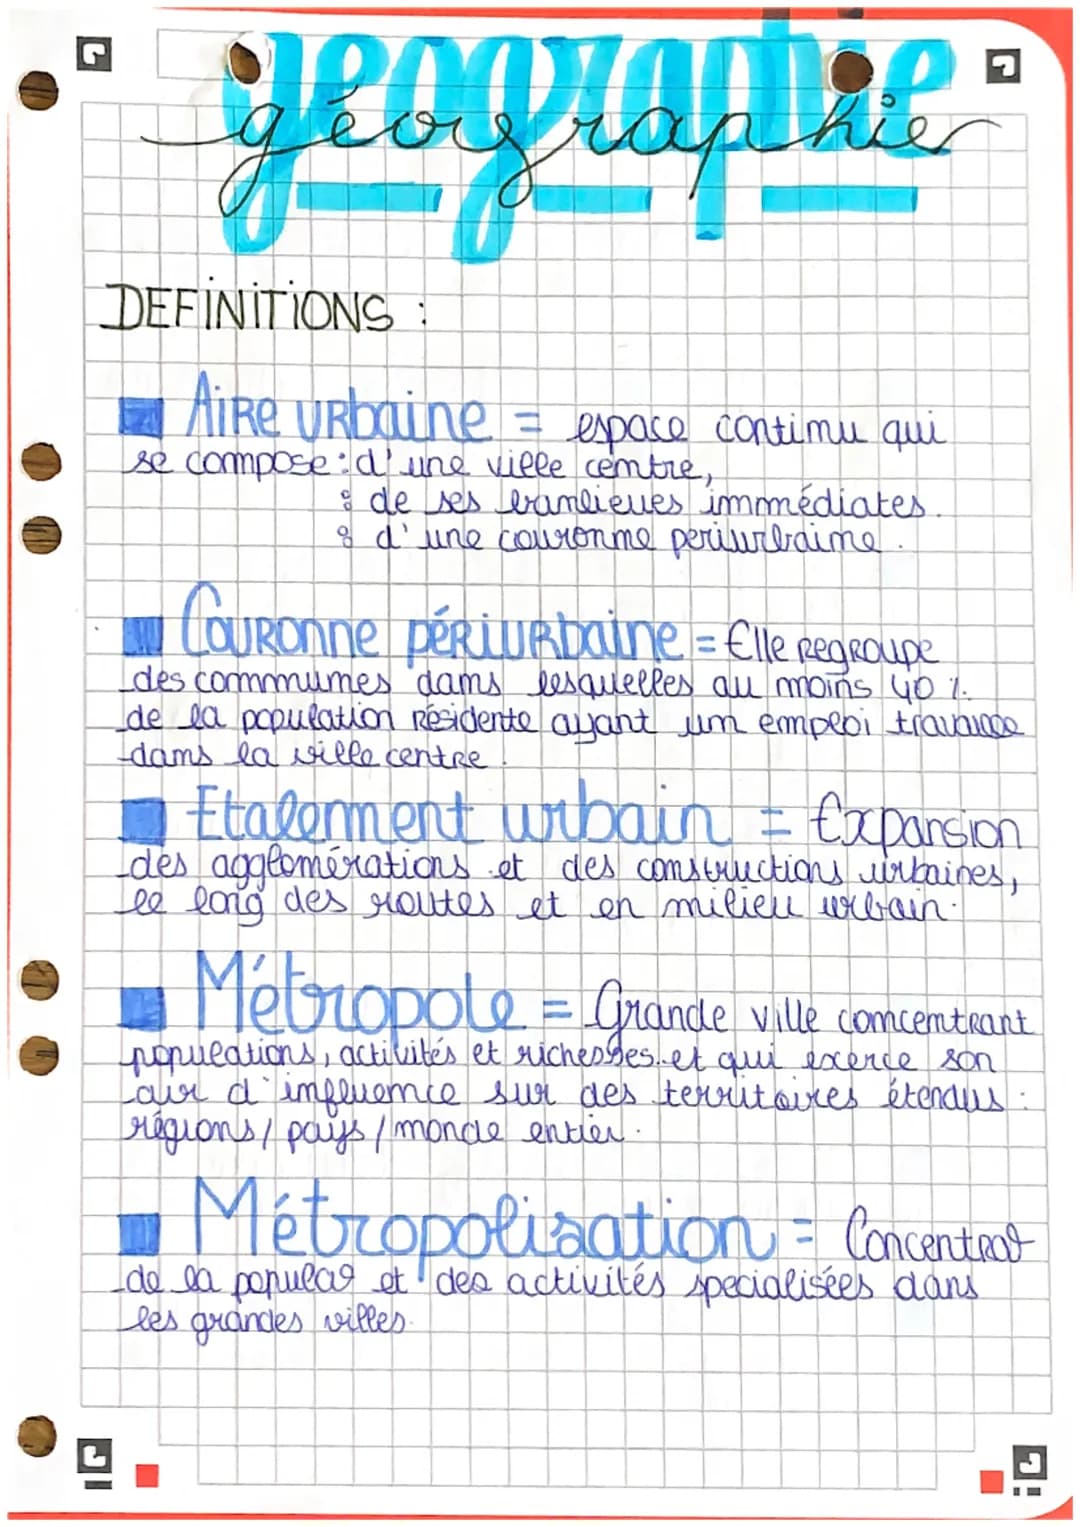 géographie
géographie
DEFINITIONS :
Aire urbaine = espace continu qui
se compose : d'une ville centre,
de ses banlieues immédiates.
d'une couronne periurbaine.
Couronne périurbaine = Elle regroupe
des communes dans lesquelles au moins 40 %
de la population résidente ayant un emploi travaille
dans la ville centre.
Etalement urbain = Expansion
des agglomérations et des constructions urbaines,
le long des routes et en milieu urbain.
Métropole = Grande ville concentrant
populations, activités et richesses et qui exerce son
air d'influence sur des territoires étendus :
régions / pays / monde entier.
Métropolisation = Concentrat°
de la populat° et des activités specialisées dans
les grandes villes.